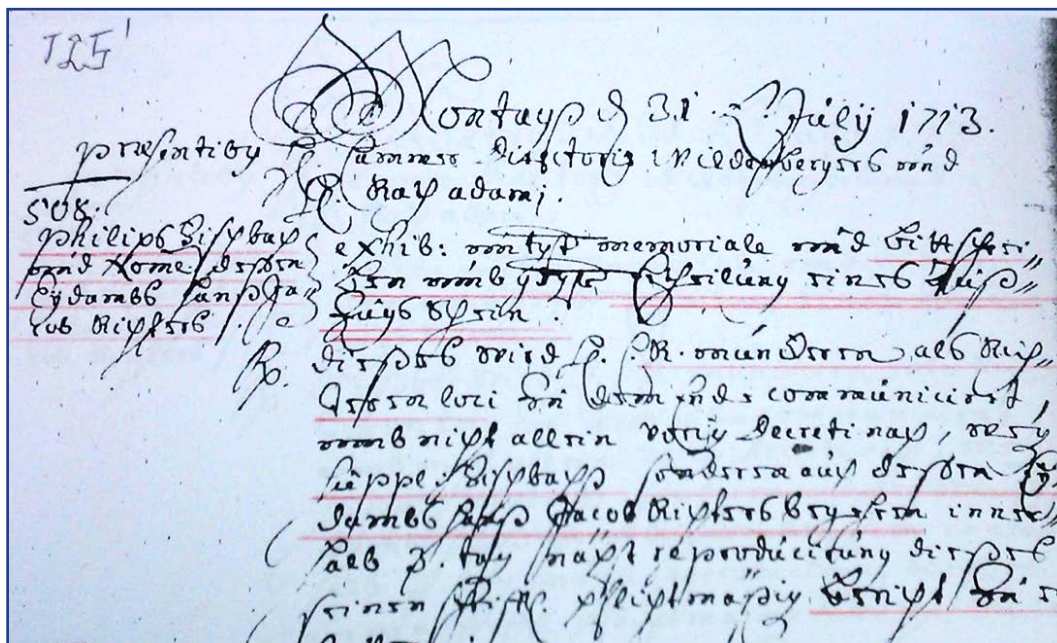 125'
Montags d 31. July 1713.
præsentibus H. Cammer Directoris Wildenbergers und
H. Rath adami.
508.
Philips Fischbach
und Nome. dessen
Eydambs Hanß Ja-
cob Richters.
exhib: memoriale und Bittschri
umb Ertheilung eines Huiß"
Zuigs Schein.
R. dießes wird H. als Rich"
loci zu dem Ende communiciret,
umb nicht allein vorig Decreti nach, weg
suppl. Fischbachs sonderen auch dessen Ey
dambs Hanß Jacob Richters begehren inner"
halb 8. tag nächst reproducirung dießes
seinen schrifftl. pflichtmäßig Bericht